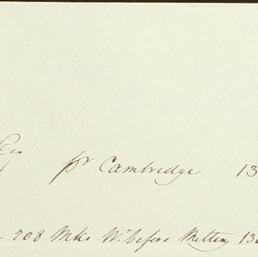 Esq pr Cambridge 13
208 Mks Wt. before Melting 13